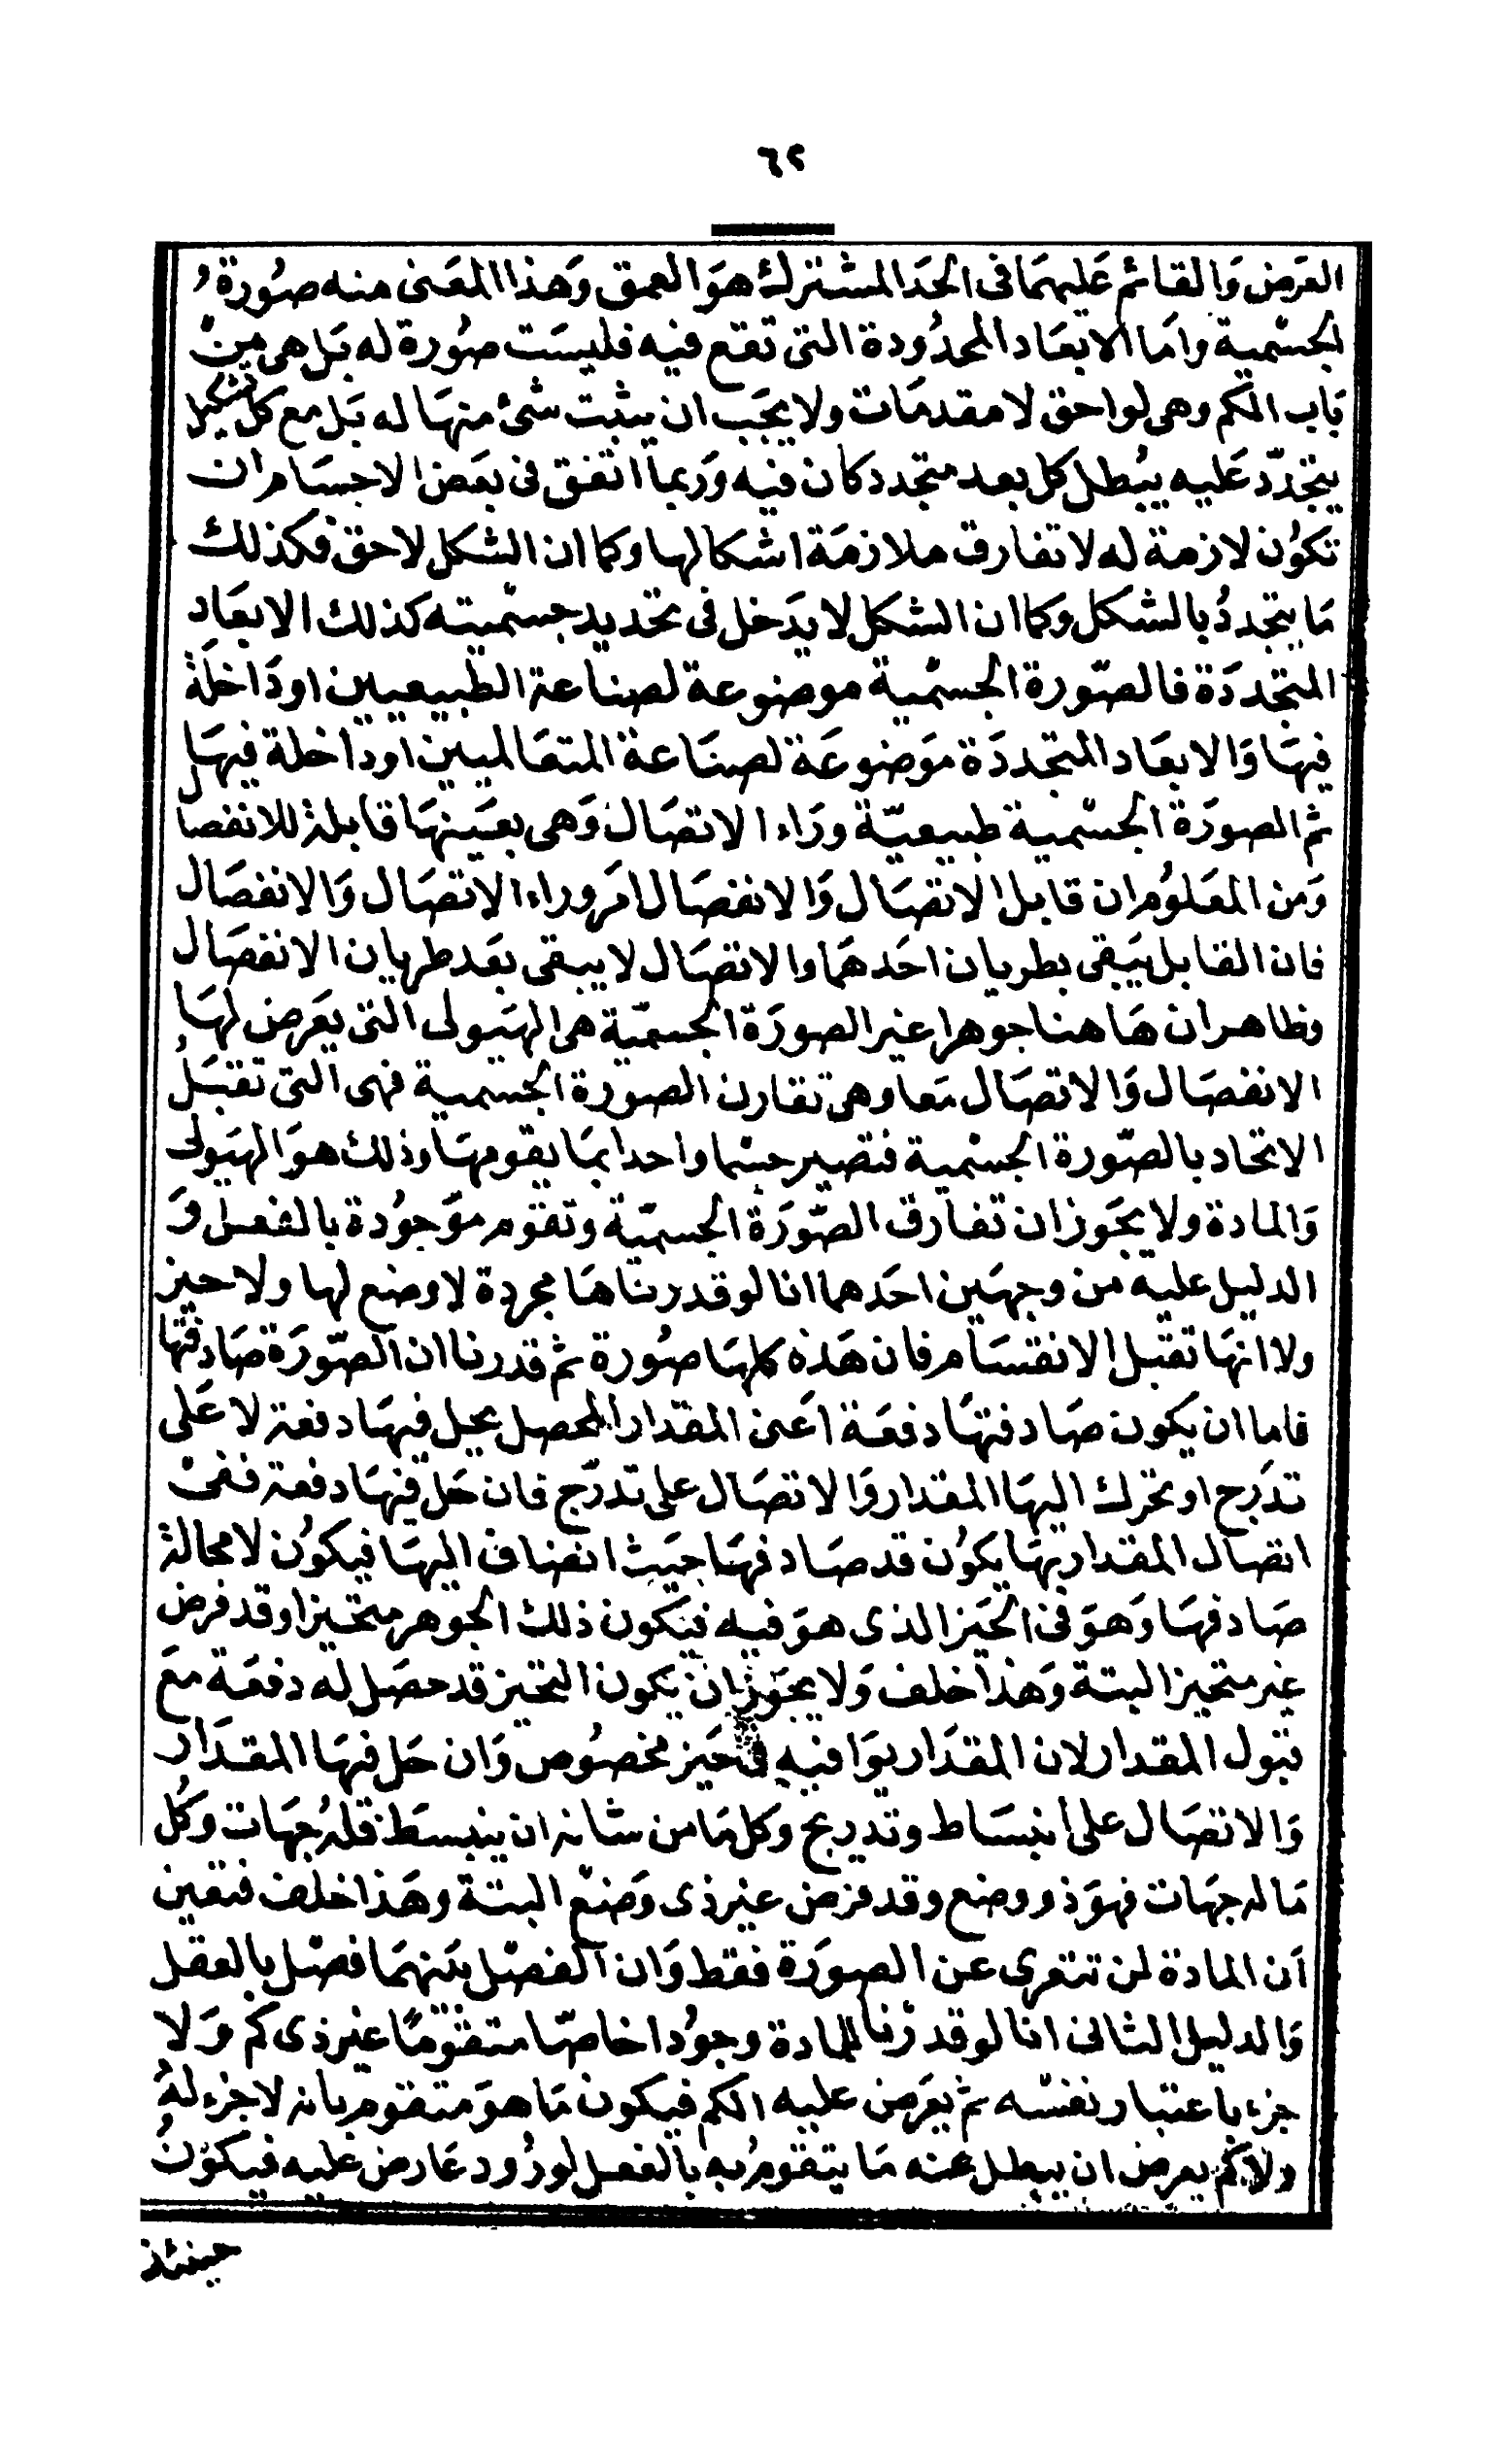 ٦٢
العرض والقائم عليهما في الحد المشترك هو العمق وهذا المعنى منه صورة
الجسمية واما الابعاد المحدودة التي تقع فيه فليست صورة له بل هي من
باب الكم وهي لواحق لا مقدمات ولا يجب ان يثبت شئ منها له بل مع كل تشكيل
يتجدد عليه يبطل كل بعد متجدد كان فيه وربما اتفق في بعض الاجسام ان
تكون لازمة له لا تفارق ملازمة اشكالها وكما ان الشكل لاحق فكذلك
ما يتجدد بالشكل وكما ان الشكل لا يدخل في تحديد جسميته كذلك الابعاد
المتجددة فالصورة الجسمية موضوعة لصناعة الطبيعيين او داخلة
فيها والابعاد المتجددة موضوعة لصناعة المتعالميين او داخلة فيها
ثم الصورة الجسمية طبيعية وراء الاتصال وهي بعينها قابلة للانفصال
ومن المعلوم ان قابل الاتصال والانفصال امر وراء الاتصال والانفصال
فان القابل يبقى بطريان احدهما والاتصال لا يبقى بعد طريان الانفصال
وظاهر ان هاهنا جوهرا غير الصورة الجسمية هي الهيولى التي يعرض لها
الانفصال والاتصال معا وهي تقارن الصورة الجسمية فهي التي تقبل
الاتحاد بالصورة الجسمية فتصير جسما واحدا بما يقومها وذلك هو الهيولى
والمادة ولا يجوز ان تفارق الصورة الجسمية وتقوم موجودة بالفعل و
الدليل عليه من وجهين احدهما انا لو قدرناها مجردة لا وضع لها ولا حيز
ولا انها تقبل الانقسام فان هذه كلها صورة ثم قدرنا ان الصورة صادفتها
فاما ان يكون صادفتها دفعة اعنى المقدار المحصل يحل فيها دفعة لا على
تدرج او تحرك اليها المقدار والاتصال على تدرج فان حل فيها دفعة ففي
اتصال المقدار بها يكون قد صادفها حيث انضاف اليها فيكون لا محالة
صادفها وهو في الحيز الذي هو فيه فيكون ذلك الجوهر متحيزا وقد فرض
غير متحيز البتة وهذا خلف ولا يجوز ان يكون التحيز قد حصل له دفعة مع
قبول المقدار لان المقدار يوافيه في حيز مخصوص وان حل فيها المقدار
والاتصال على انبساط وتدريج وكل ما من شانه ان ينبسط فله جهات وكل
ما له جهات فهو ذو وضع وقد فرض غير ذي وضع البتة وهذا خلف فتعين
ان المادة لن تتعرى عن الصورة فقط وان الفصل بينهما فصل بالعقل
والدليل الثاني انا لو قدرنا للمادة وجودا خاصا متقوما غير ذي كم ولا
جزء باعتبار نفسه ثم يعرض عليه الكم فيكون ما هو متقوم بانه لا جزء له
ولا كم يعرض ان يبطل عنه ما يتقوم به بالفعل لورود عارض عليه فيكون
حينئذ